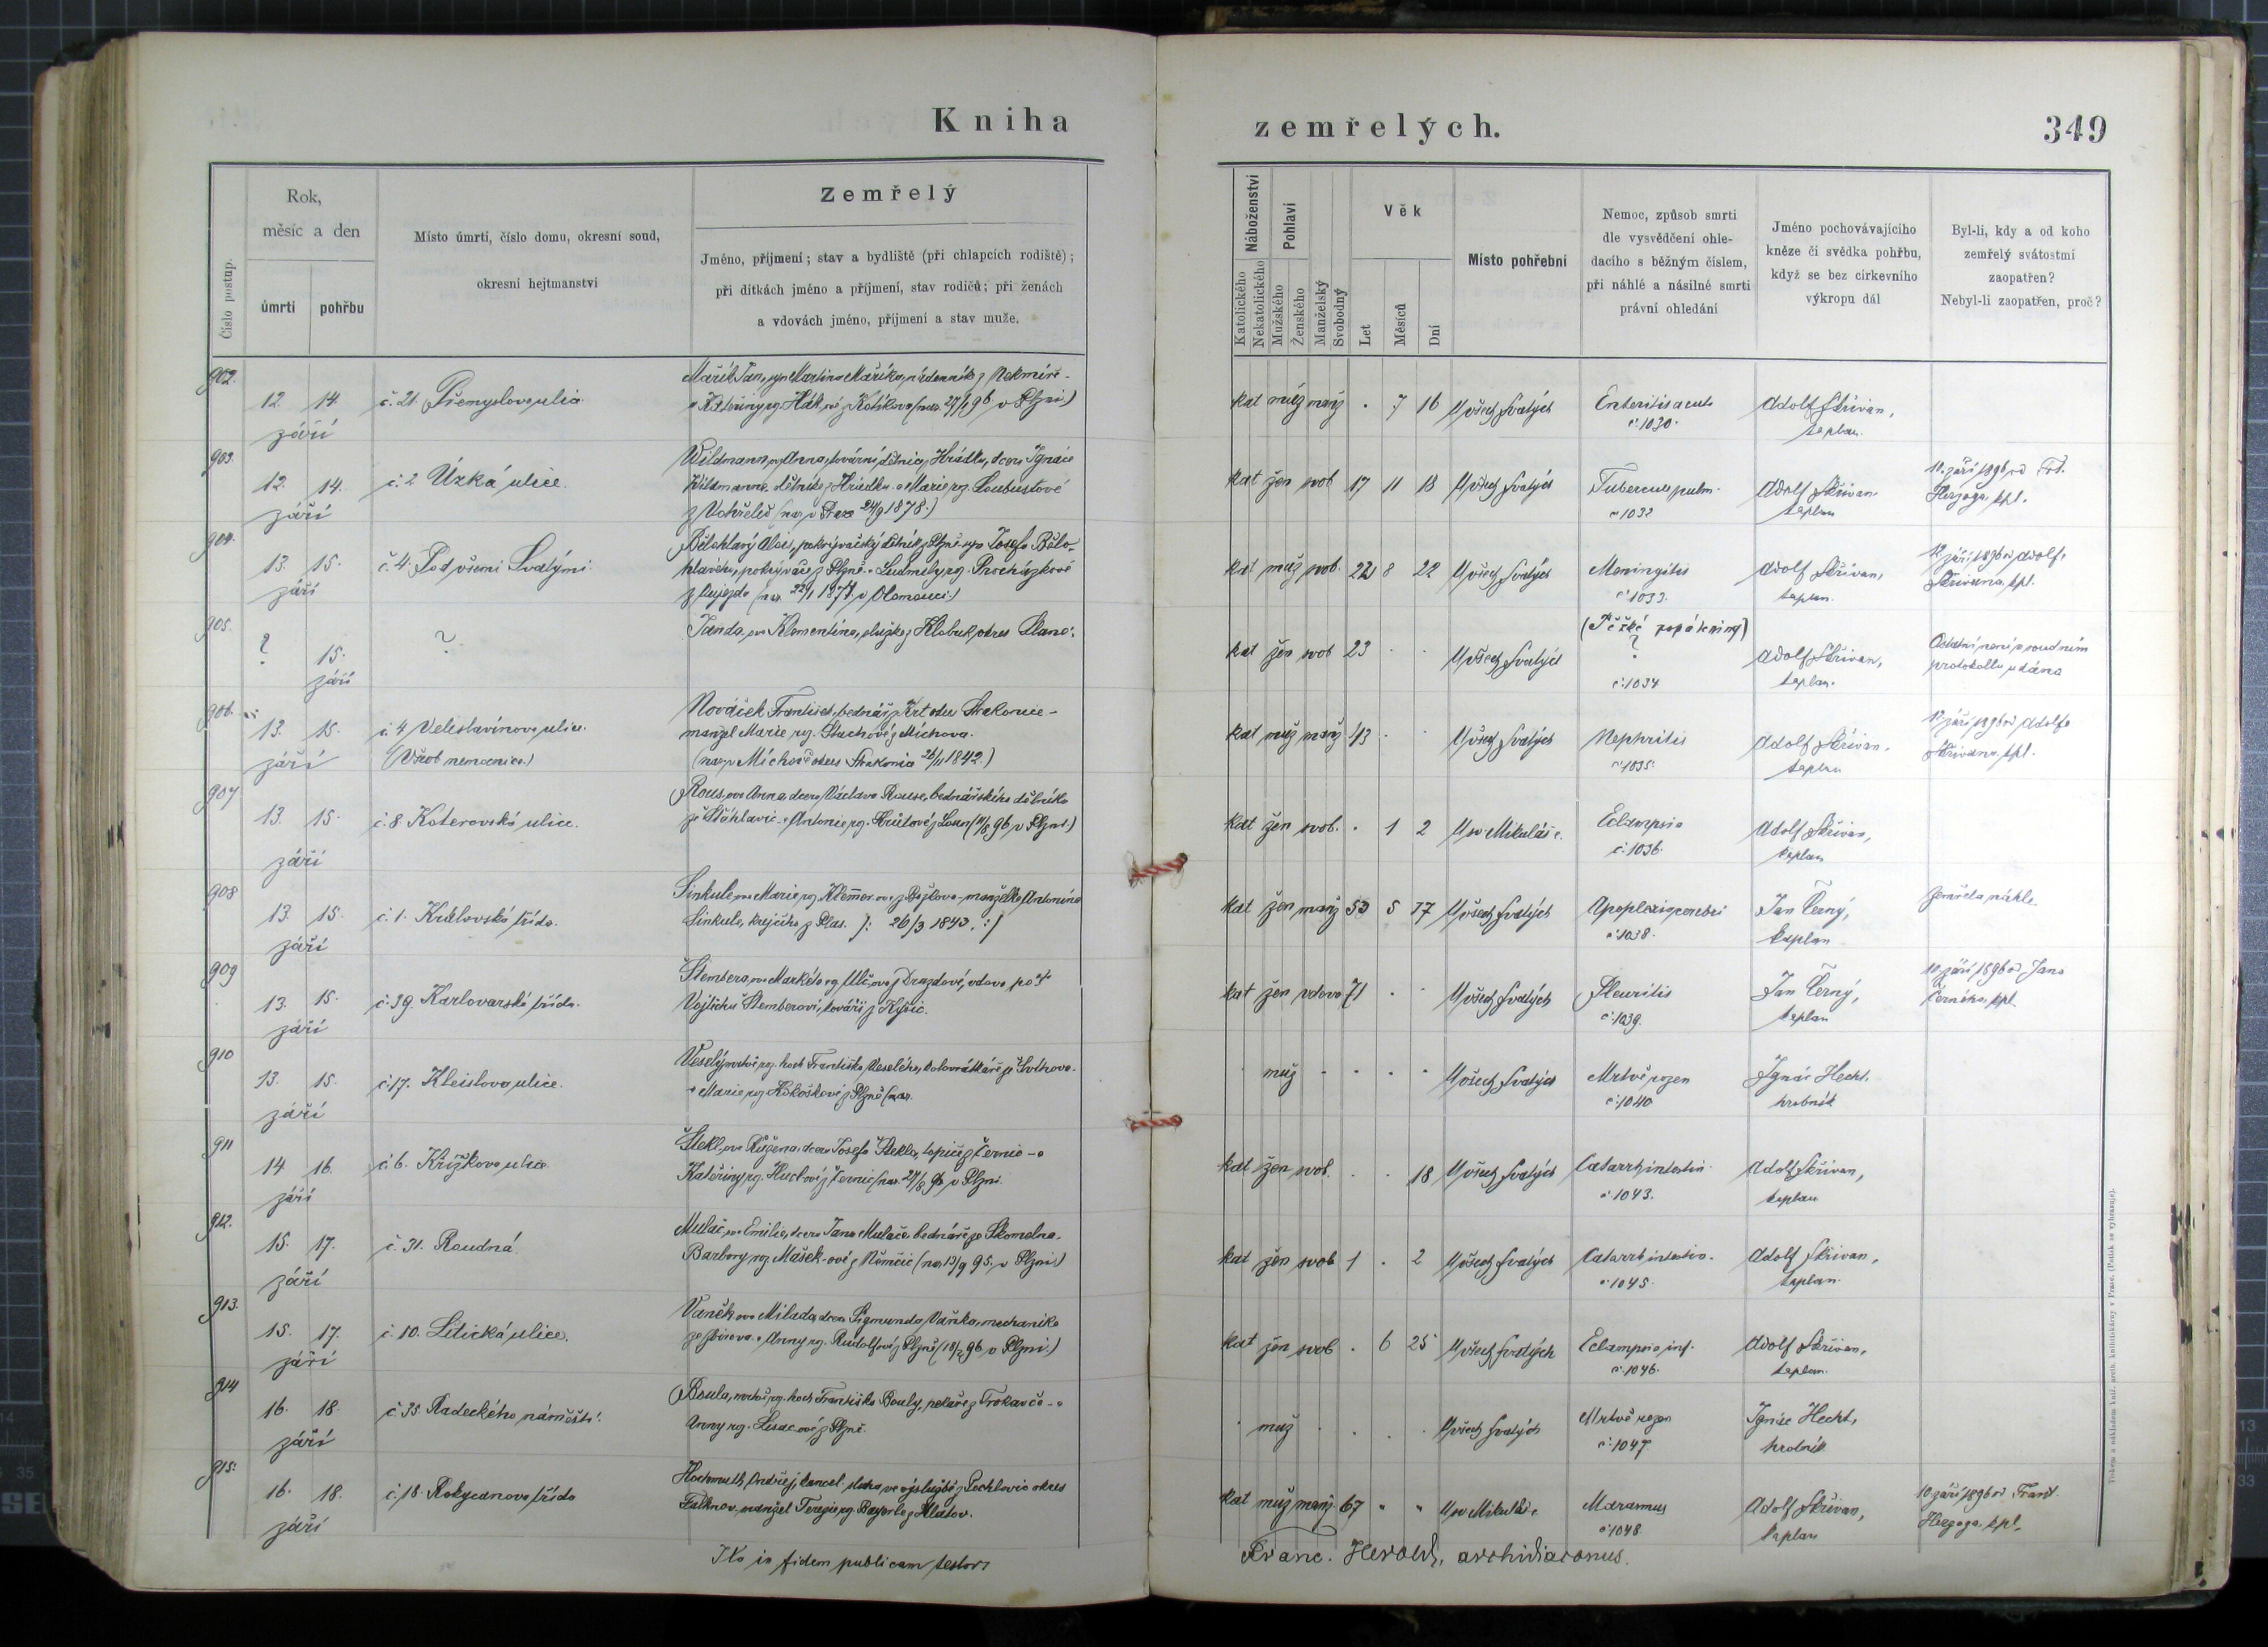 Kniha
zemřelých.
349
Číslo postup.
Rok,
měsíc a den
úmrtí
pohřbu
Místo úmrtí, číslo domu, okresní soud,
okresní hejtmanství
Zemřelý
Jméno, příjmení; stav a bydliště (při chlapcích rodiště);
při dítkách jméno a příjmení, stav rodičů; při ženách
a vdovách jméno, příjmení a stav muže.
Náboženství
Katolického
Nekatolického
Pohlaví
Mužského
Ženského
Manželský
Svobodný
Věk
Let
Měsíců
Dní
Místo pohřební
Nemoc, způsob smrti
dle vysvědčení ohle-
dacího s běžným číslem,
při náhlé a násilné smrti
právní ohledání
Jméno pochovávajícího
kněze či svědka pohřbu,
když se bez církevního
výkropu dál
Byl-li, kdy a od koho
zemřelý svátostmi
zaopatřen?
Nebyl-li zaopatřen, proč?
902.
12. 14. září
č. 21. Přemyslova ulice
Mařík Jan, syn Martina Maříka, nádenníka z Nekmíře -
a Kateřiny rg. Hák ové z Kotíkova (nar. 27/1 96 v Plzni.)
kat muž manž . 7 16 U všech Svatých
Enteritis acuta
č. 1030.
Adolf Skřivan,
kaplan.
903.
12. 14. září
č. 2 Úzká ulice.
Wildmann ová Anna, tovární dělnice z Hrádku, dcera Ignáce
Wildmanna, dělníka z Hrádku a Marie rg. Loubustové
24/9 1878.)
kat žen svob 17 11 18 U všech Svatých
Tubercus pulm.
č. 1032
Adolf Skřivan
kaplan
10. září 1896 od Frt.
Herzoga, kpl.
904.
13. 15. září
č. 4. Pod všemi Svatými
Bělohlavý Alois, pokrývačský dělník z Plzně syn Josefa Bělo-
hlavého, pokrývače z Plzně a Ludmily rg. Procházkové
z Újezda (nar. v Olomouci.)
kat muž svob. 22 8 22 U všech Svatých
Meningitis
č. 1033.
Adolf Skřivan,
kaplan.
12 září 1896 od Adolfa
Skřivana, kpl.
905.
? 15. září
?
Janda, ová Klementina, služka z Klobuk, okres Slaný.
kat žen svob 23 . . U všech Svatých
(Těžké popáleniny)
?
č. 1034
Adolf Skřivan,
kaplan.
Ostatní není v soudním
protokollu udáno
906.
13. 15. září
č. 4 Veleslavínova ulice.
(Všeob nemocnice.)
Nováček František, bednář z okr Strakonic -
manžel Marie, rg. z Míchova.
(nar. v Míchově okres Strakonice 1842.)
kat muž manž 43 . . U všech Svatých
Nephritis
č. 1035.
Adolf Skřivan.
kaplan
12 září 1896 od Adolfa
Skřivana, kpl.
907
13. 15. září
č. 8. Koterovská ulice.
Rous, ová Anna, dcera Václava Rouse, bednářského dělníka
ze Šťáhlavic a Antonie rg. z Loun (11/8 96 v Plzni.)
kat žen svob. . 1 2 U sv. Mikuláše.
Eclampsia
č. 1036.
Adolf Skřivan,
kaplan
908
13. 15. září
č. 1. Královská třída.
Sinkule ová Marie rg. Klemmer ová z Božkova manželka Antonína
Sinkule, krejčího z Plas. /: 26/3 1843. :/
kat žen manž 53 5 17 U všech Svatých
Apoplexia cerebri
č. 1038.
Jan Černý,
kaplan
Zemřela náhle.
909
13. 15. září
č. 39. Karlovarská třída.
Štembera, ová Markéta rg. Ulč, ová z Drazdové, vdova po †
Vojtěchu Štemberovi, kováři z Kyšic.
kat žen vdova 71 . . U všech Svatých
Pleuritis
č. 1039.
Jan Černý,
kaplan
10. září 1896 od Jana
Černého, kpl.
910
13. 15. září
č. 17. Kleislova ulice.
Veselý mrtvě rg. hoch Františka Veselého, kolovrátkáře ze Švihova
a Marie rg. Kokoškové z Plzně (nar.
muž . . . . U všech Svatých
Mrtvě rozen
č. 1040
Ignác Hecht,
hrobník
911
14 16. září
č. 6. Křížkova ulice
Štekl, ová Růžena, dcera Josefa Štekla, topiče z Černic - a
Kateřiny rg. Huclové z Černic (nar. 27/8 96 v Plzni.
kat žen svob. . . 18 U všech Svatých
Catarrh intestin.
č. 1043.
Adolf Skřivan,
kaplan
912.
15. 17. září
č. 31. Roudná.
Mulač, ová Emilie, dcera Jana Mulače, bednáře ze Skomelna.
Barbory rg. Mašek-ové z Němčic (nar. 13/9 95. v Plzni.)
kat žen svob 1 . 2 U všech Svatých
Catarrh intestin.
č. 1045.
Adolf Skřivan,
kaplan.
913.
15. 17. září
č. 10. Litická ulice.
Vaněk ová Milada, dcera Sigmunda Vaňka, mechanika
ze Zbirova a Anny rg. Rudolfové z Plzně (18/2 96 v Plzni.)
kat žen svob . 6 25 U všech Svatých
Eclampsia inf.
č. 1046.
Adolf Skřivan,
kaplan.
914
16. 18. září
č 35 Radeckého náměstí.
Boula, mrtvě rg. hoch Františka Bouly, pekaře z Trokavče - a
Anny rg. Lisac ové z Plzně.
muž . . . . U všech Svatých
Mrtvě rozen
č. 1047
Ignác Hecht,
hrobník
915.
16. 18. září
č. 18. Rokycanova třída
Hochmuth Ondřej, kancel. sluha ve výslužbě z Lechlovic okres
Falknov, manžel Terezie rg. z Klatov.
kat muž manž. 67 " " U sv Mikuláše
Marasmus
č. 1048.
Adolf Skřivan,
kaplan
10 září 1896 od Frant
Herzoga, kpl.
Ita in fidem publicam testor
Franc. Herold, archidiaconus.